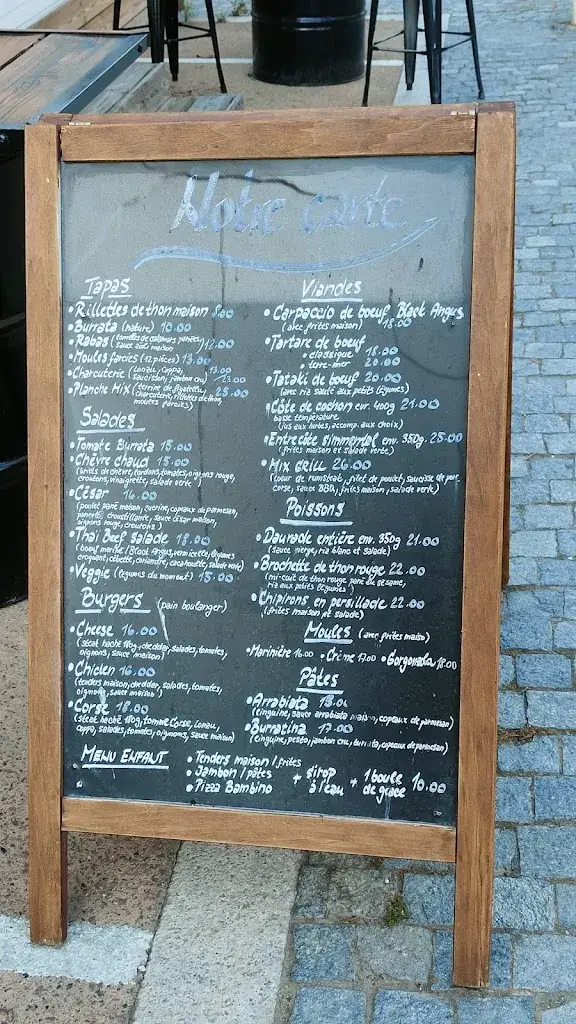 Notre carte
Tapas
• Rillettes de thon maison 8.00
• Burrata (nature) 10.00
• Rabas (tentacules de calamars panées, sauce aioli maison) 12.00
• Moules farcies (12 pièces) 13.00
• Charcuterie (Lonzu, Coppa, 13.00
Saucisson, jambon cru) 23.00
• Planche Mix (terrine de figatellu, 25.00
charcuterie, rillettes de thon,
moules farcies)
Salades
• Tomate Burrata 15.00
• Chèvre chaud 15.00
(bricks de chèvre, lardons, tomates, oignons rouge,
croutons, vinaigrette, salade verte)
• César 16.00
(poulet pané maison, sucrine, copeaux de parmesan,
pancetta croustillante, sauce césar maison,
oignons rouge, croutons)
• Thaï Beef salade 18.00
(boeuf mariné / Black Angus, vermicelle, légumes
croquant, cébette, coriandre, cacahouète, salade verte)
• Veggie (légumes du moment) 15.00
Burgers (pain boulanger)
• Cheese 16.00
(steak haché 180g, cheddar, salades, tomates,
oignons, sauce maison)
• Chicken 16.00
(tenders maison, cheddar, salades, tomates,
oignons, sauce maison)
• Corse 18.00
(steak haché 180g, tomme Corse, Lonzu,
coppa, salades, tomates, oignons, sauce maison)
Viandes
• Carpaccio de boeuf, Black Angus
(avec frites maison) 18.00
• Tartare de boeuf
• classique 18.00
• terre-mer 20.00
• Tataki de boeuf 20.00
(avec riz sauté aux petits légumes)
• Côte de cochon env. 400g 21.00
basse température
(jus aux herbes, accomp. aux choix)
• Entrecôte simmental env. 350g. 25.00
(frites maison et salade verte)
• Mix Grill 26.00
(coeur de rumsteak, filet de poulet, saucisse de porc
corse, sauce BBQ, frites maison, salade verte)
Poissons
• Daurade entière env. 350g 21.00
(sauce vierge, riz blanc et salade)
• Brochette de thon rouge 22.00
(mi-cuit de thon rouge pané au sésame,
riz aux petits légumes)
• Chipirons en persillade 22.00
(frites maison et salade)
Moules (avec frites maison)
• Marinière 16.00 • Crème 17.00 • Gorgonzola 18.00
Pâtes
• Arrabiata 15.00
(linguine, sauce arrabiata maison, copeaux de parmesan)
• Burratina 17.00
(linguine, pesto, jambon cru, burrata, copeaux de parmesan)
MENU ENFANT
• Tenders maison / frites
• Jambon / pâtes
• Pizza Bambino
+ sirop à l'eau
+ 1 boule de glace
10.00